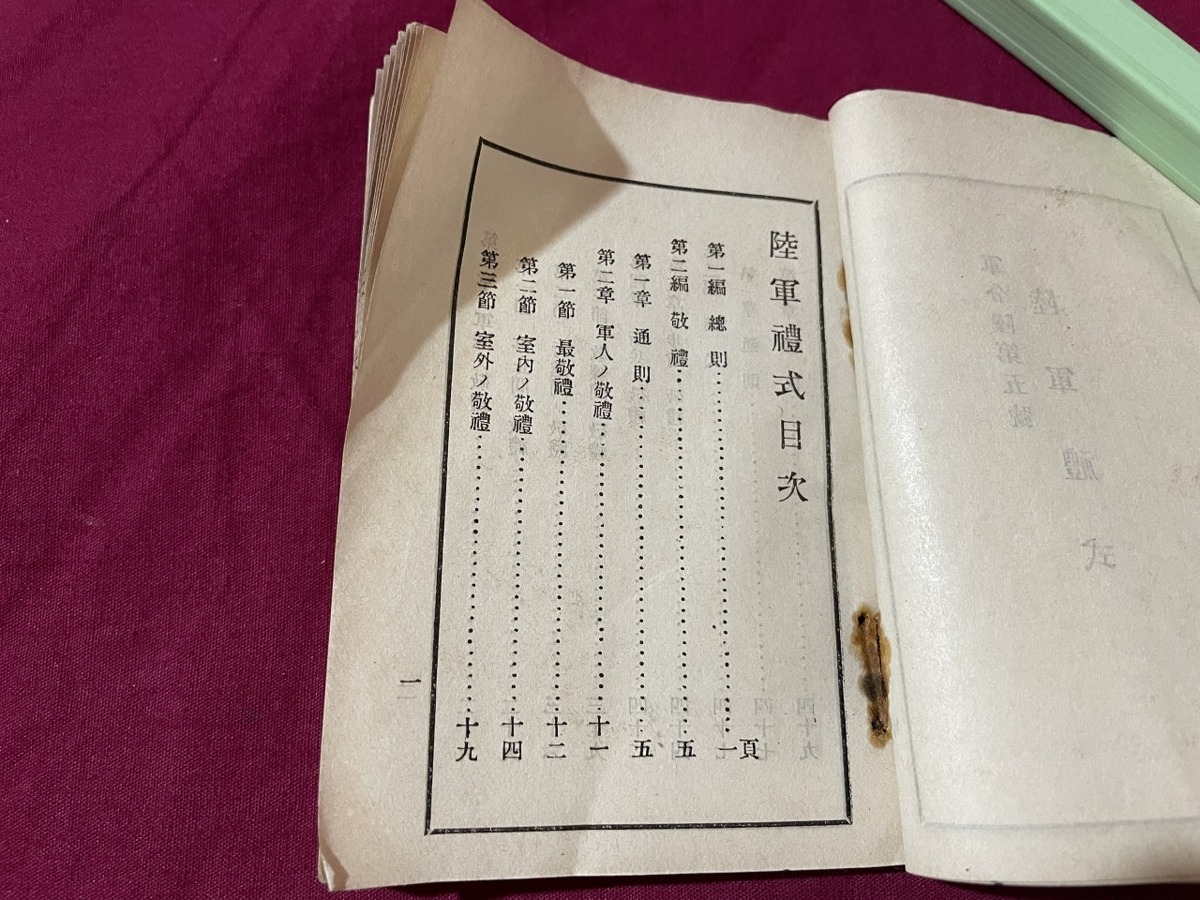 陸軍禮式目次
頁
第一編 總則……一
第二編 敬禮……五
第一章 通則……五
第二章 軍人ノ敬禮……十一
第一節 最敬禮……十二
第二節 室內ノ敬禮……十四
第三節 室外ノ敬禮……十九
一